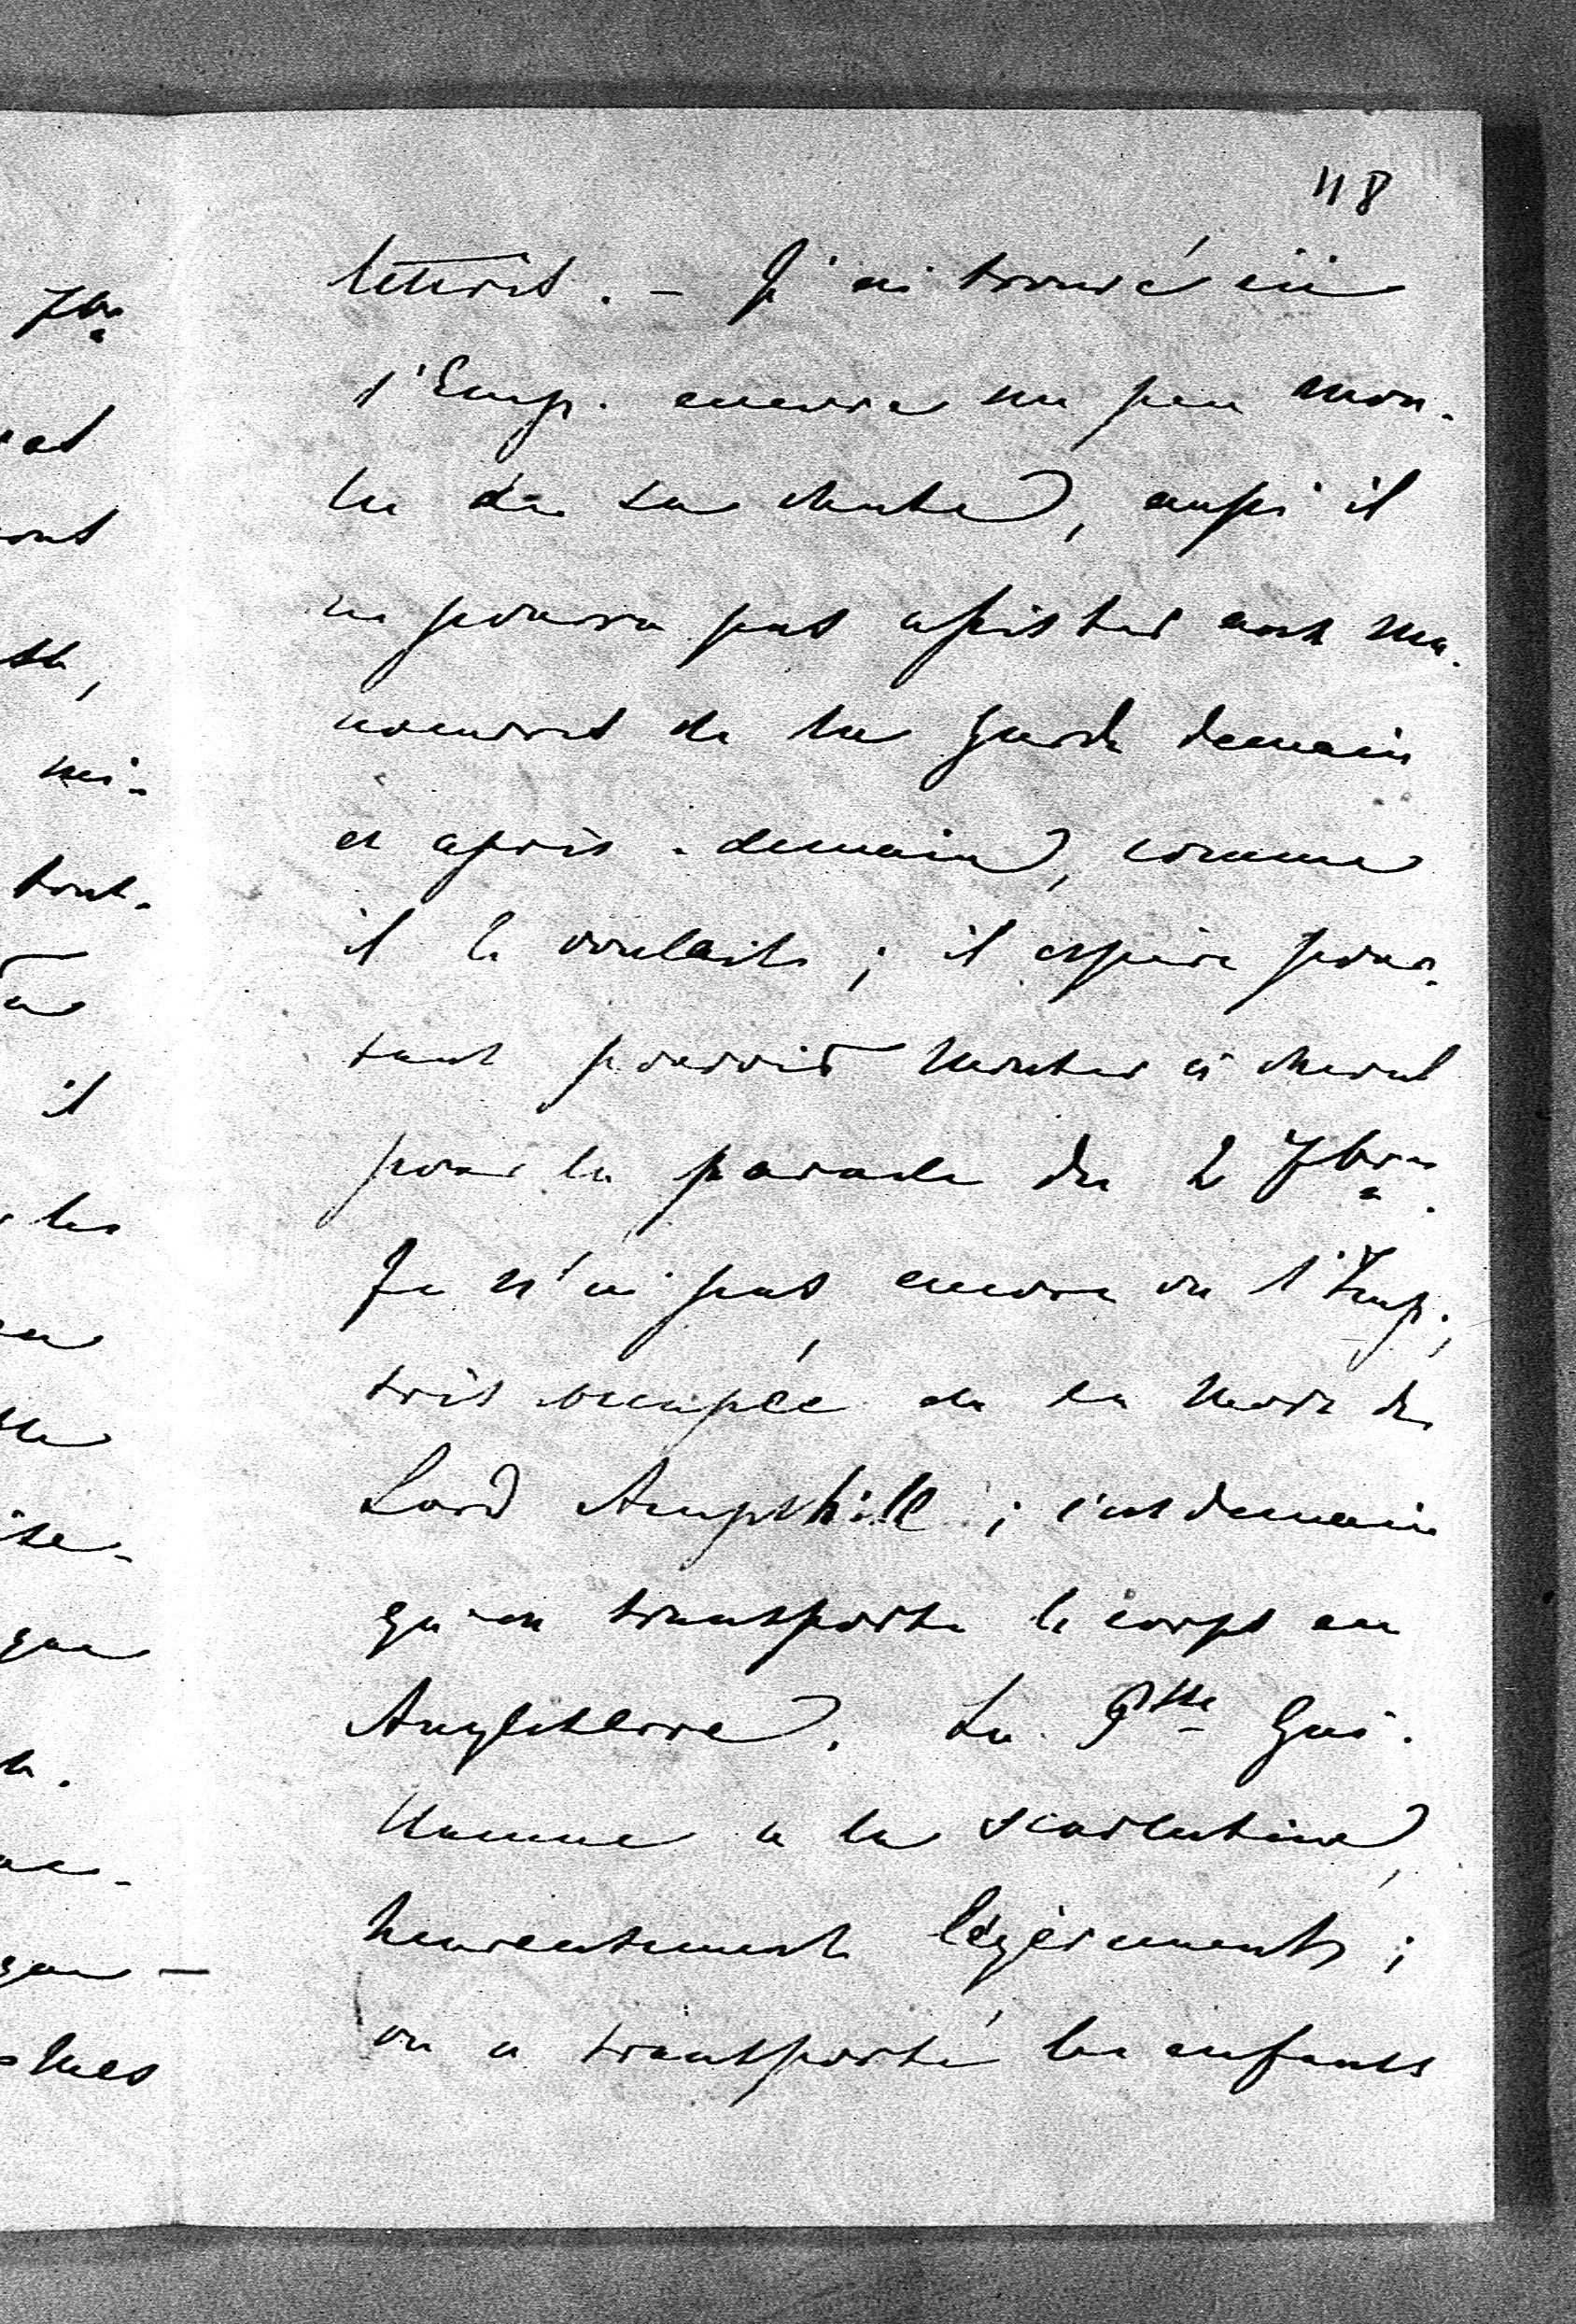 118
lettres. – J'ai trouvé ici
l'Emp. encore un peu mou-
lu de sa chute, aussi il
ne pourra pas assister aux ma-
noeuvres de la Garde demain
et après-demain, comme
il le voulait ; il espère pour-
tant pouvoir monter à cheval
pour la parade du 2 7bre.
Je n'ai pas encore vu l'Imp.,
très occupée de la mort de
Lord Ampthill ; c'est demain
qu'on transporte le corps en
Angleterre. La Psse Gui-
llaume a la scarlatine,
heureusement légèrement ;
on a transporté les enfants
7bre
il
les
que